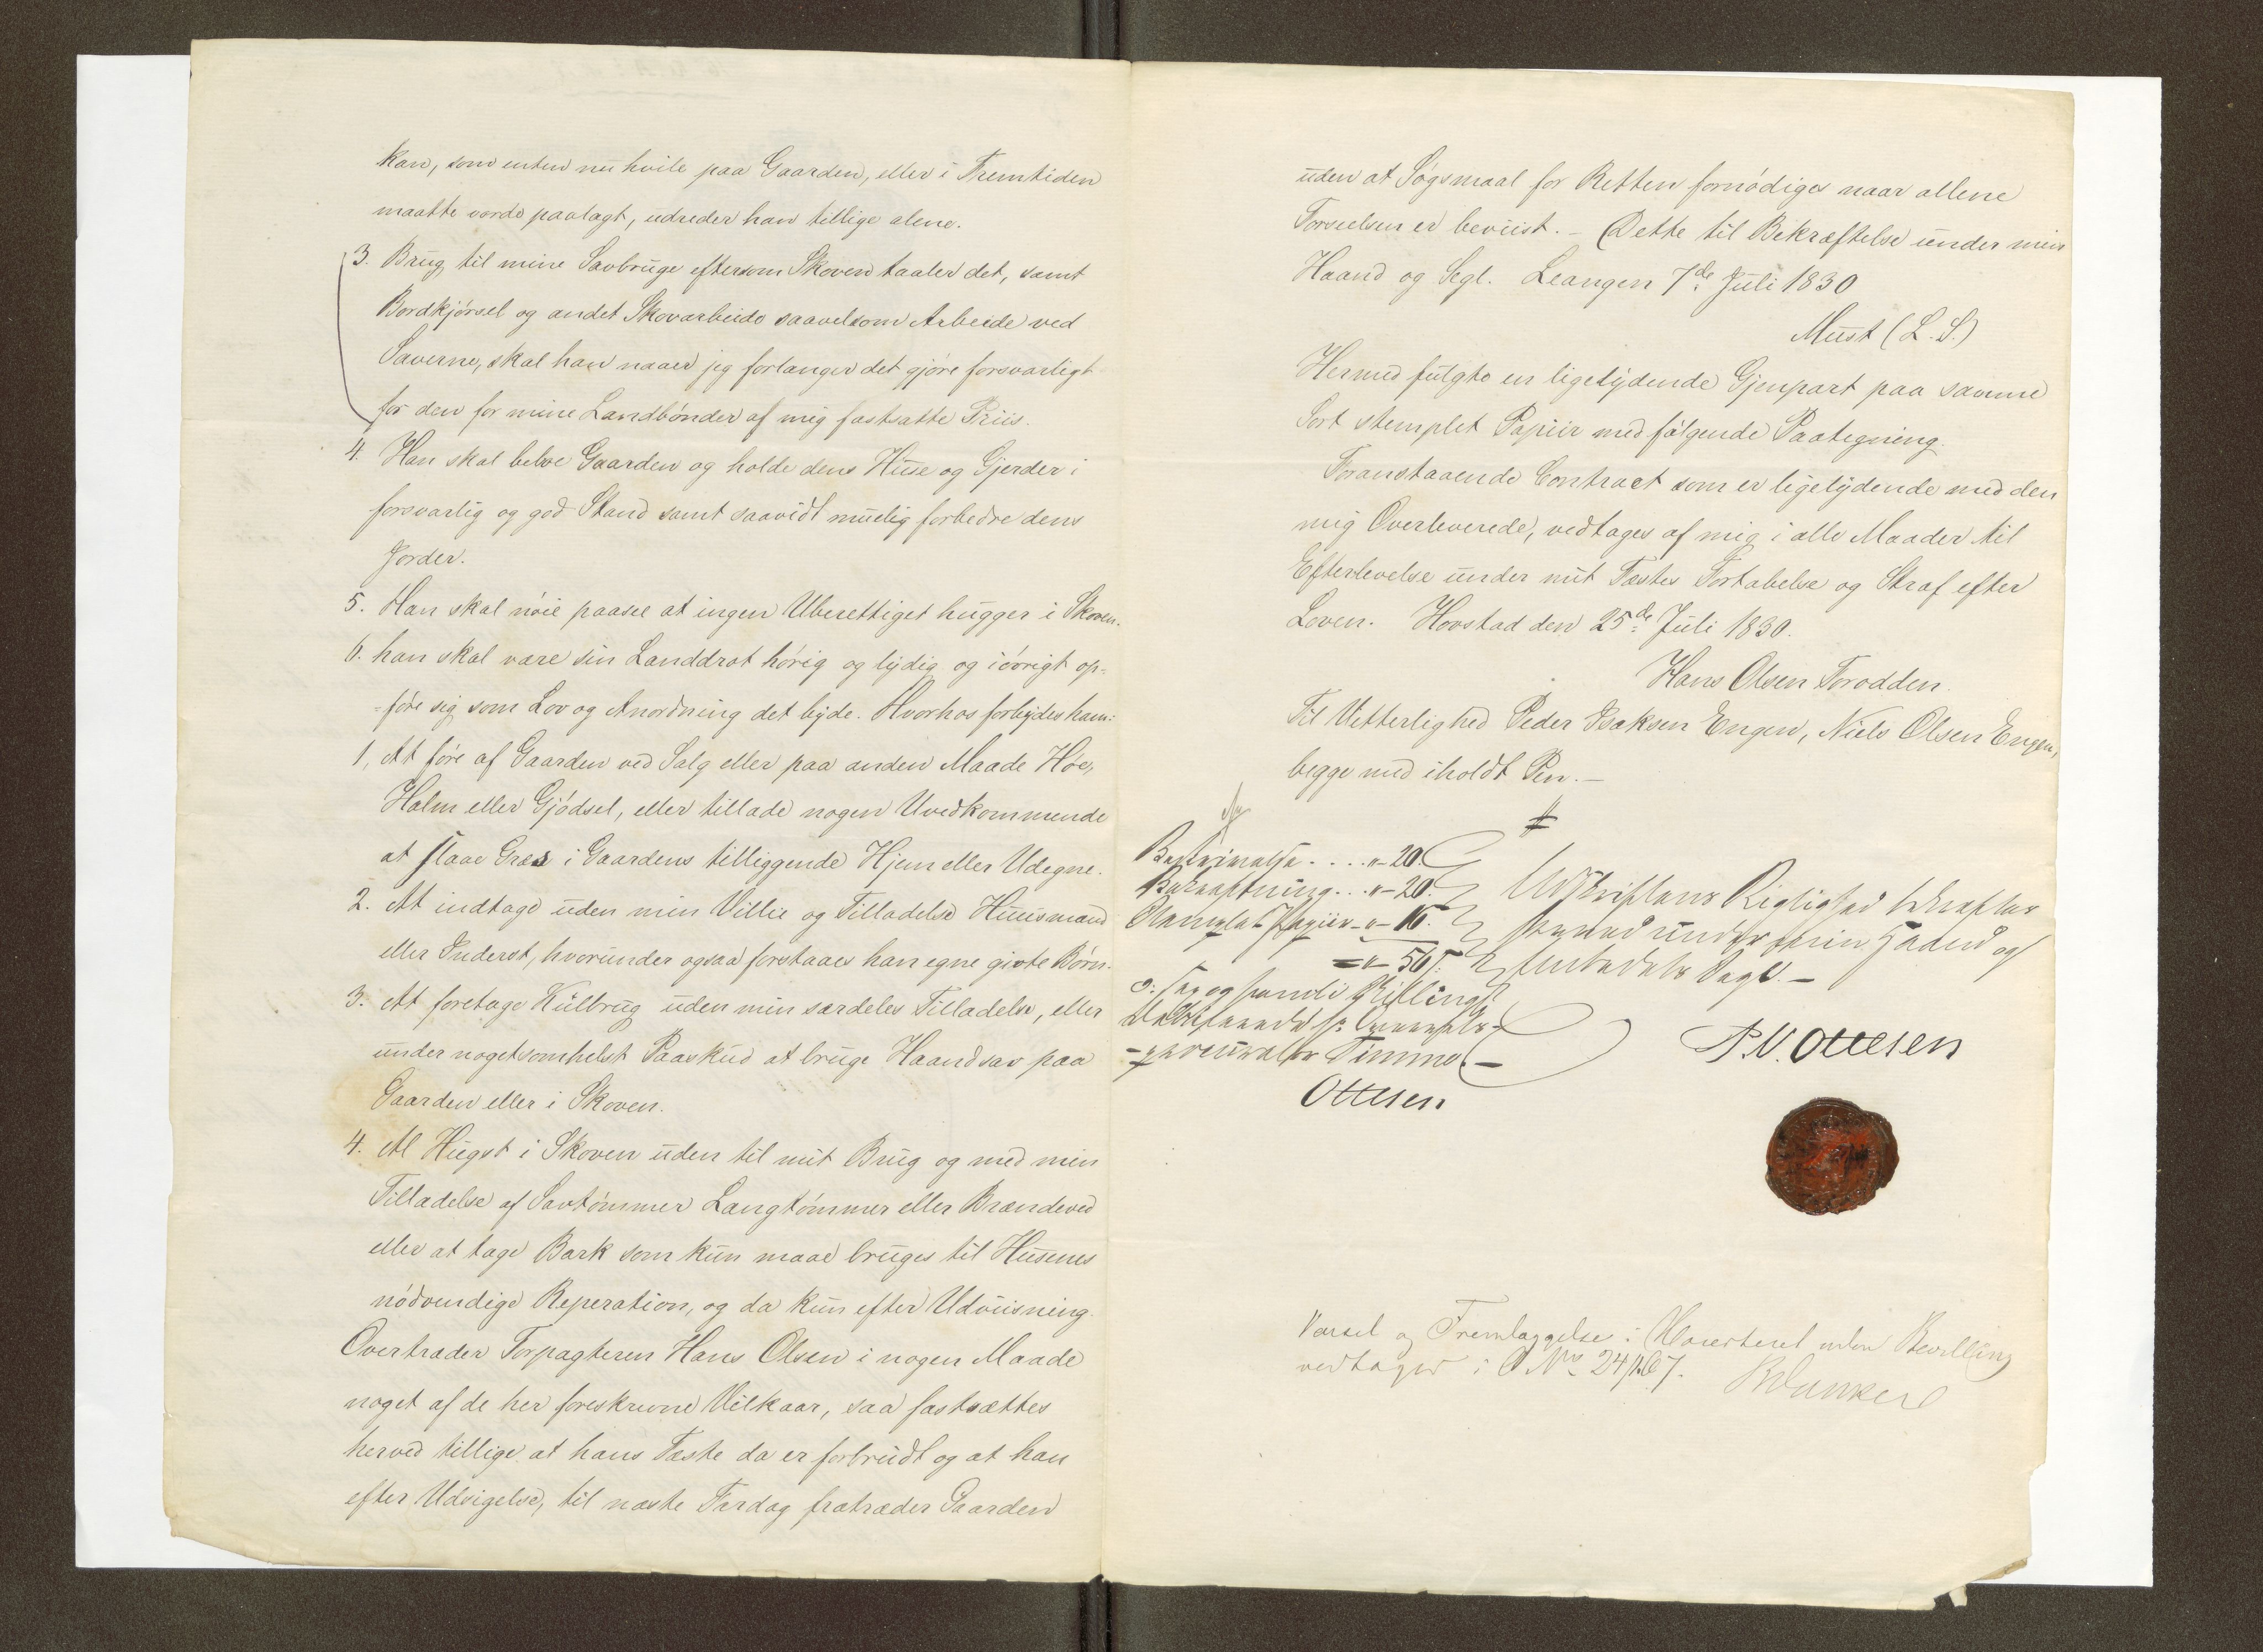 kan, som enten nu hvile paa Gaarden, eller i Fremtiden
maatte vorde paalagt, udreder han tillige alene.
3. Brug til mine Savbruge eftersom Skoven taaler det, samt
Bordkjórsel og andet Skovarbeide saavelsom Arbeide ved
Saverne, skal han naar jeg forlanger det gjóre forsvarligt
for den for mine Landbónder af mig fastsatte Priis.
4. Han skal beboe Gaarden og holde dens Huse og Gjerder i
forsvarlig og god Stand samt saavidt muelig forbedre dens
Jorder.
5. Han skal nóie paasee at ingen Uberettiget hugger i Skoven.
6. han skal være sin Landdrot hórig og lydig og ióvrigt op-
-fóre sig som Lov og Anordning det byde. Hvorhos forbydes ham:
1, At fóre af Gaarden ved Salg eller paa anden Maade Höe,
Halm eller Gjódsel, eller tillade nogen Uvedkommende
at slaae Græs i Gaardens tilliggende Hjem eller Udegne.
2. At indtage uden min Villie og Tilladelse Huusmand
eller Inderst, hvorunder ogsaa forstaaes han egne givte Børn.
3. At foretage Kulbrug uden min særdeles Tilladelse, eller
under nogetsomhelst Paaskud at bruge Haandsav paa
Gaarden eller i Skoven.
4. Al Hugst i Skoven uden til mit Brug og med min
Tilladelse af Savtómmer Langtómmer eller Brændeved
eller at tage Bark som kun maae bruges til Husenes
nódvendige Reperation, og da kun efter Udviisning.
Overtræder Forpagteren Hans Olsen i nogen Maade
noget af de her foreskrevne Vilkaar, saa fastsættes
herved tillige at hans Fæste da er forbrudt og at han
efter Udsigelse, til næste Fardag fratræder Gaarden
uden at Sógsmaal for Retten fornódiges naar allene
Forseelsen er beviist. - Dette til Bekræftelse under min
Haand og Segl. Leangen 7de Juli 1830
Must (L. S.)
Hermed fulgte en ligelydende Gjenpart paa samme
Sort stemplet Papiir med fölgende Paategning.
Foranstaaende Contract som er ligelydende med den
mig Overleverede, vedtages af mig i alle Maader til
Efterlevelse under mit Fæstes Fortabelse og Straf efter
Loven. Hovstad den 25de Juli 1830.
Hans Olsen Forodden.
Til Vitterlighed Peder Isaksen Engen, Niels Olsen Engen,
begge med iholdt Pen. -
Beskrivelse .... "-20.
Bekræftning... "-20.
Stemplet Papiir - "- 16.
= "- 56
Udskriftens Rigtighed bekræftes
herved under min Haand og
Embedets Segl. -
Ottesen
P. N. Ottesen
Varsel og Fremlæggelse i uden Bevilling
vedtages i No 24/1867.